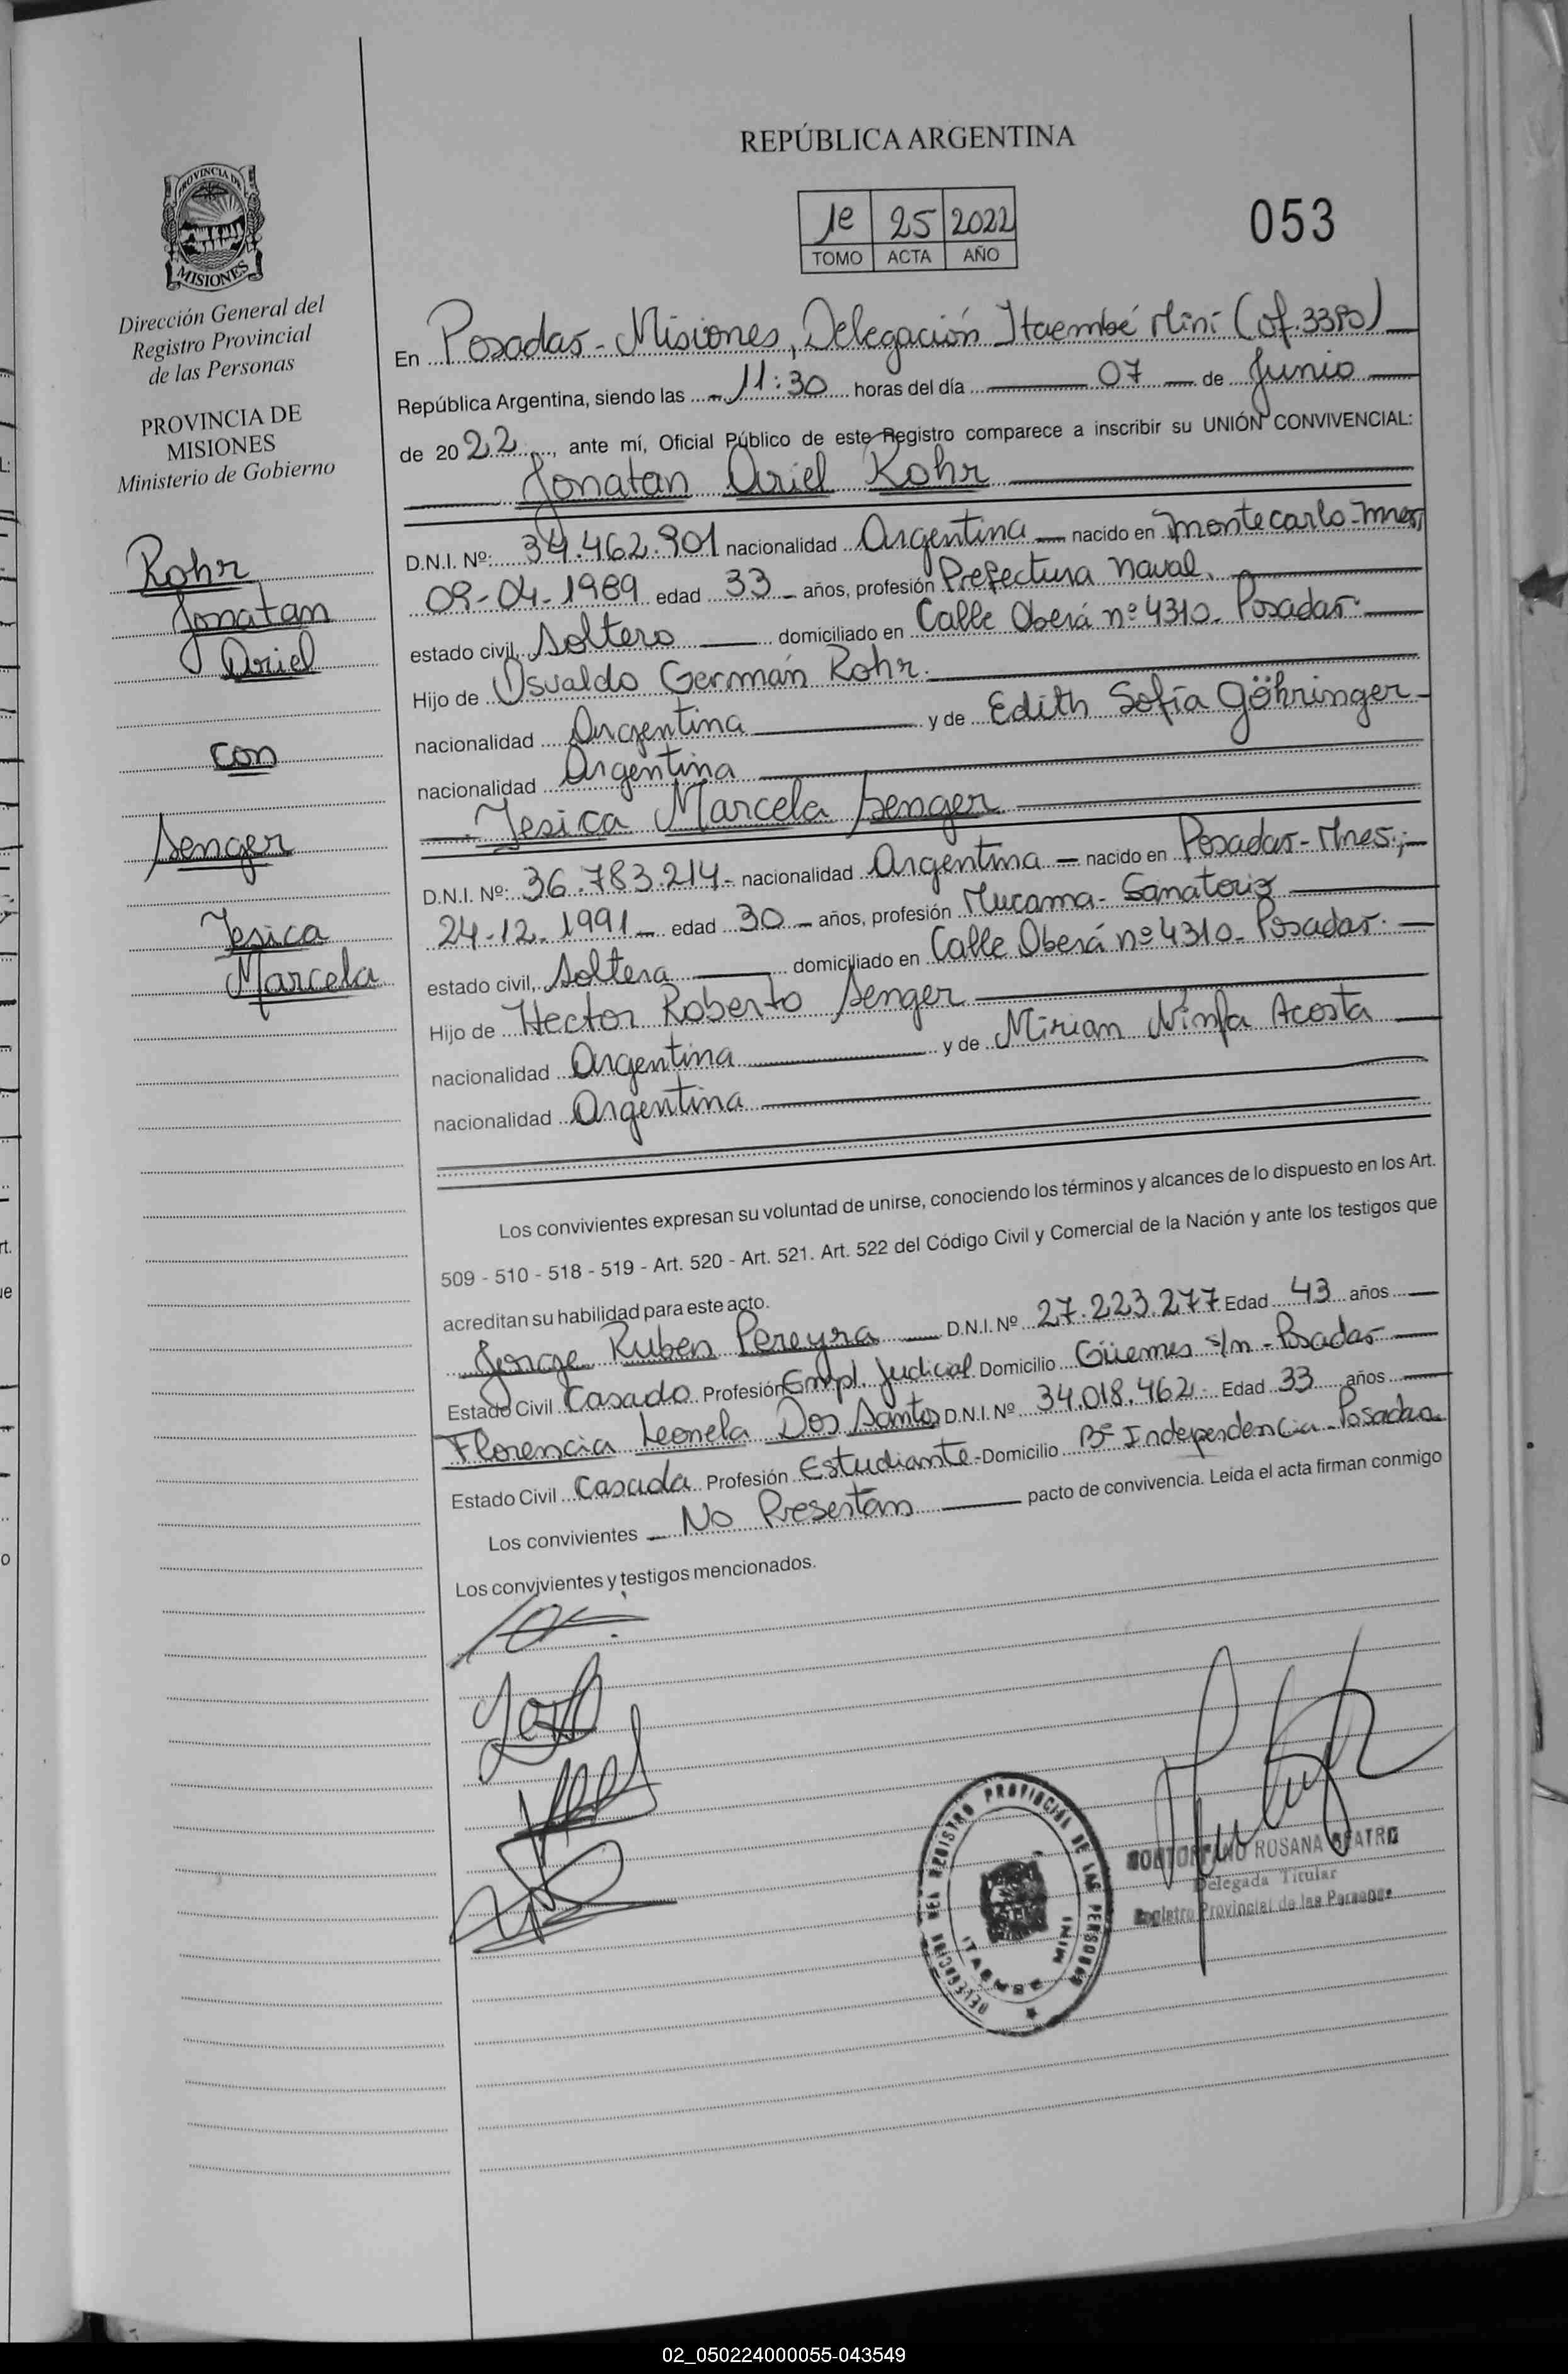 REPÚBLICA ARGENTINA
1e 25 2022
TOMO ACTA AÑO
053
PROVINCIA DE
MISIONES
Dirección General del
Registro Provincial
de las Personas
PROVINCIA DE
MISIONES
Ministerio de Gobierno
Rohr
Jonatan
Ariel
con
Senger
Jesica
Marcela
En Posadas - Misiones, Delegación Itaembé Miní (of. 3380)
República Argentina, siendo las 11:30 horas del día 07 de Junio
de 2022, ante mí, Oficial Público de este Registro comparece a inscribir su UNIÓN CONVIVENCIAL:
Jonatan Ariel Rohr
D.N.I. Nº: 34.462.901 nacionalidad Argentina nacido en Montecarlo-Mnes,
09-04-1989 edad 33 años, profesión Prefectura Naval.
estado civil, Soltero domiciliado en Calle Oberá nº 4310. Posadas.
Hijo de Osvaldo Germán Rohr.
nacionalidad Argentina y de Edith Sofía Göhringer
nacionalidad Argentina
Jesica Marcela Senger
D.N.I. Nº: 36.783.214- nacionalidad Argentina nacido en Posadas-Mnes;
24-12-1991 edad 30 años, profesión Mucama-Sanatorio
estado civil, Soltera domiciliado en Calle Oberá nº 4310. Posadas.
Hijo de Hector Roberto Senger
nacionalidad Argentina y de Mirian Ninfa Acosta
nacionalidad Argentina
Los convivientes expresan su voluntad de unirse, conociendo los términos y alcances de lo dispuesto en los Art.
509 - 510 - 518 - 519 - Art. 520 - Art. 521. Art. 522 del Código Civil y Comercial de la Nación y ante los testigos que
acreditan su habilidad para este acto.
Jorge Ruben Pereyra D.N.I. Nº 27.223.277 Edad 43 años
Estado Civil Casado Profesión Empl. Judicial Domicilio Güemes s/n - Posadas
Florencia Leonela Dos Santos D.N.I. Nº 34.018.462 Edad 33 años
Estado Civil Casada Profesión Estudiante - Domicilio Bº Independencia - Posadas
Los convivientes No Presentan pacto de convivencia. Leída el acta firman conmigo
Los convivientes y testigos mencionados.
DELEGACION DEL REGISTRO PROVINCIAL DE LAS PERSONAS
ITAEMBE MINI
ROSANA BEATRIZ
Delegada Titular
Registro Provincial de las Personas
02_050224000055-043549